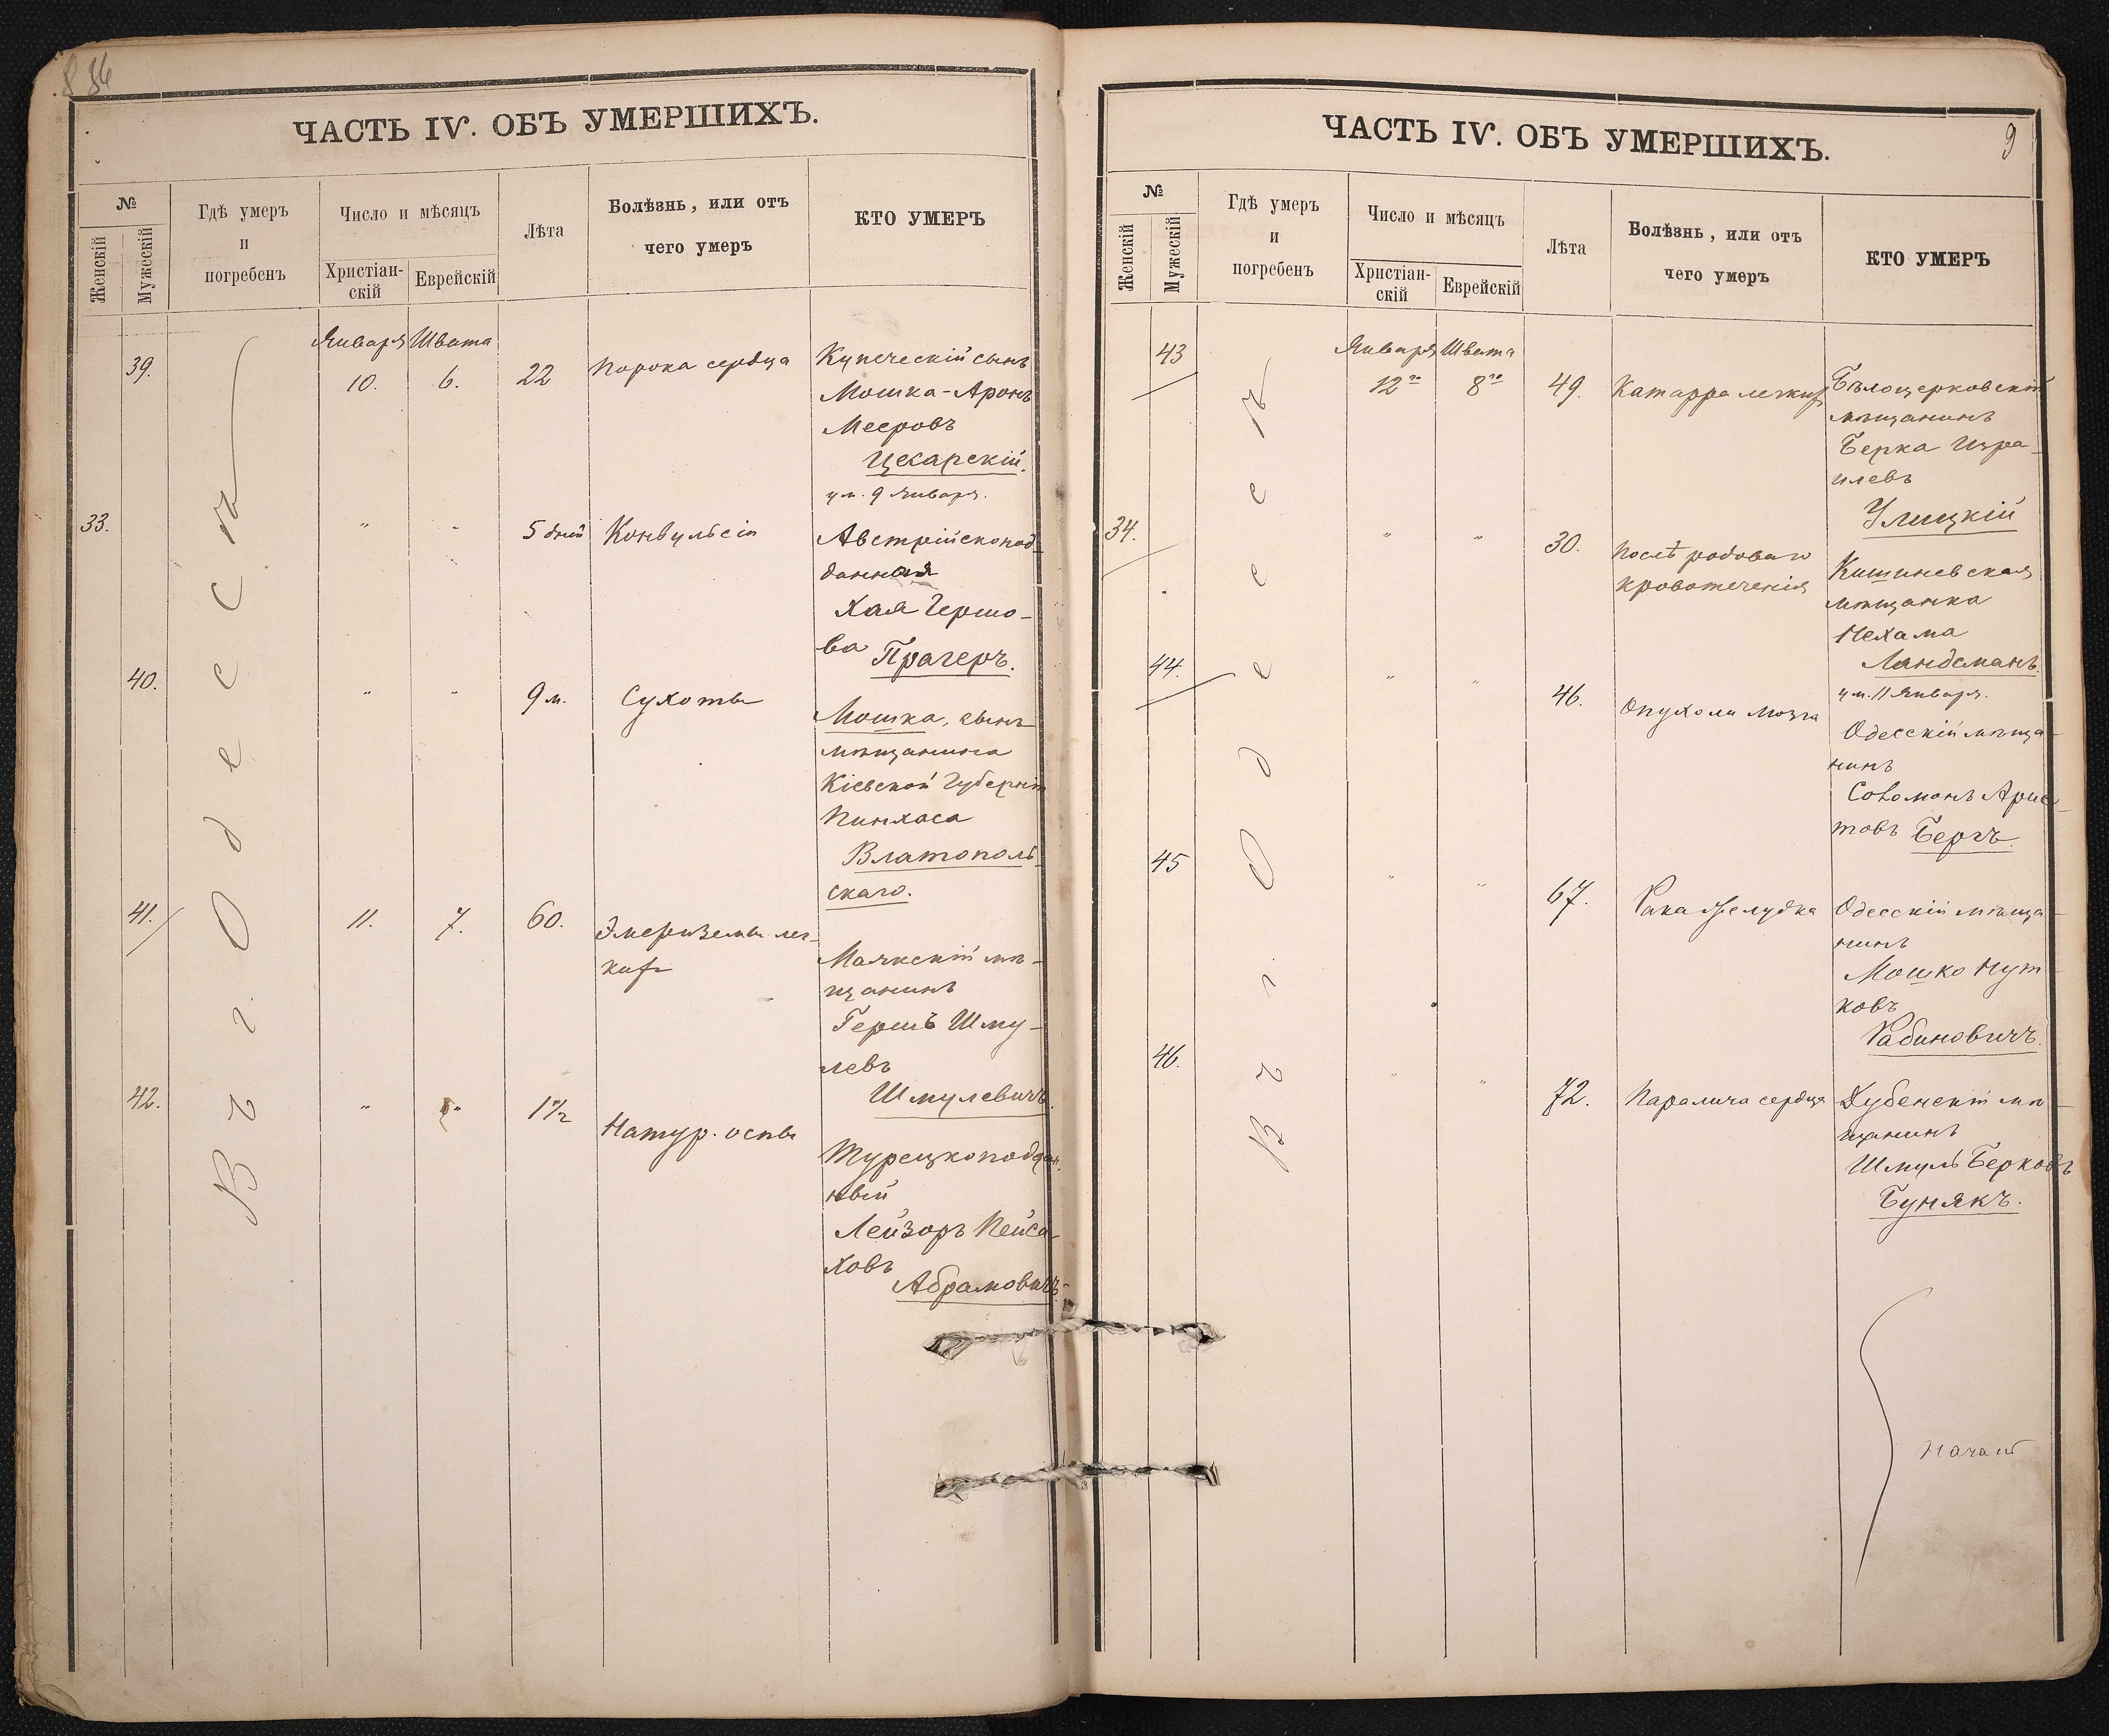 8 86
ЧАСТЬ IV. ОБЪ УМЕРШИХЪ.
№
Женскій
Мужескій
Гдѣ умеръ
и
погребенъ
Число и мѣсяцъ
Христіан-
скій
Еврейскій
Лѣта
Болѣзнь, или отъ
чего умеръ
КТО УМЕРЪ
В г. Одессѣ
Января Швата
39. 10. 6. 22 Порока сердца
Купеческій сынъ
Мошка-Аронъ
Мееровъ
Цекарскій.
ум. 9 Января.
33. " " 5 дней Конвульсіи
Австрійскопод-
данная
Хая Гершо-
ва Прагеръ.
40. " " 9 м. Сухоты
Мошка, сынъ
мѣщанина
Кіевской Губерніи
Пинхаса
Златополь-
скаго.
41. 11. 7. 60. Эмфиземы лег-
кихъ
Маякскій мѣ-
щанинъ
Гершъ Шму-
левъ
Шмулевичъ.
42. " " 1 1/2 Натур. оспы
Турецкоподдан-
ный
Лейзоръ Пейса-
ховъ
Абрамовичъ.
9
ЧАСТЬ IV. ОБЪ УМЕРШИХЪ.
№
Женскій
Мужескій
Гдѣ умеръ
и
погребенъ
Число и мѣсяцъ
Христіан-
скій
Еврейскій
Лѣта
Болѣзнь, или отъ
чего умеръ
КТО УМЕРЪ
Въ г. Одессѣ
Января Швата
43 12го 8го 49. Катарра легкихъ
Бѣлоцерковскій
мѣщанинъ
Берка Изра-
илевъ
Улицкій
34. " " 30. Послѣродоваго
кровотеченія
Кишиневская
мѣщанка
Нехама
Ландсманъ.
ум. 11 Января.
44. " " 46. Опухоли мозга
Одесскій мѣща-
нинъ
Соломонъ Арис-
товъ Бергъ.
45 " " 67. Рака желудка
Одесскій мѣща-
нинъ
Мошко Нут-
ковъ
Рабиновичъ.
46. " " 72. Паралича сердца
Дубенскій мѣ-
щанинъ
Шмуль Берковъ
Бунякъ.